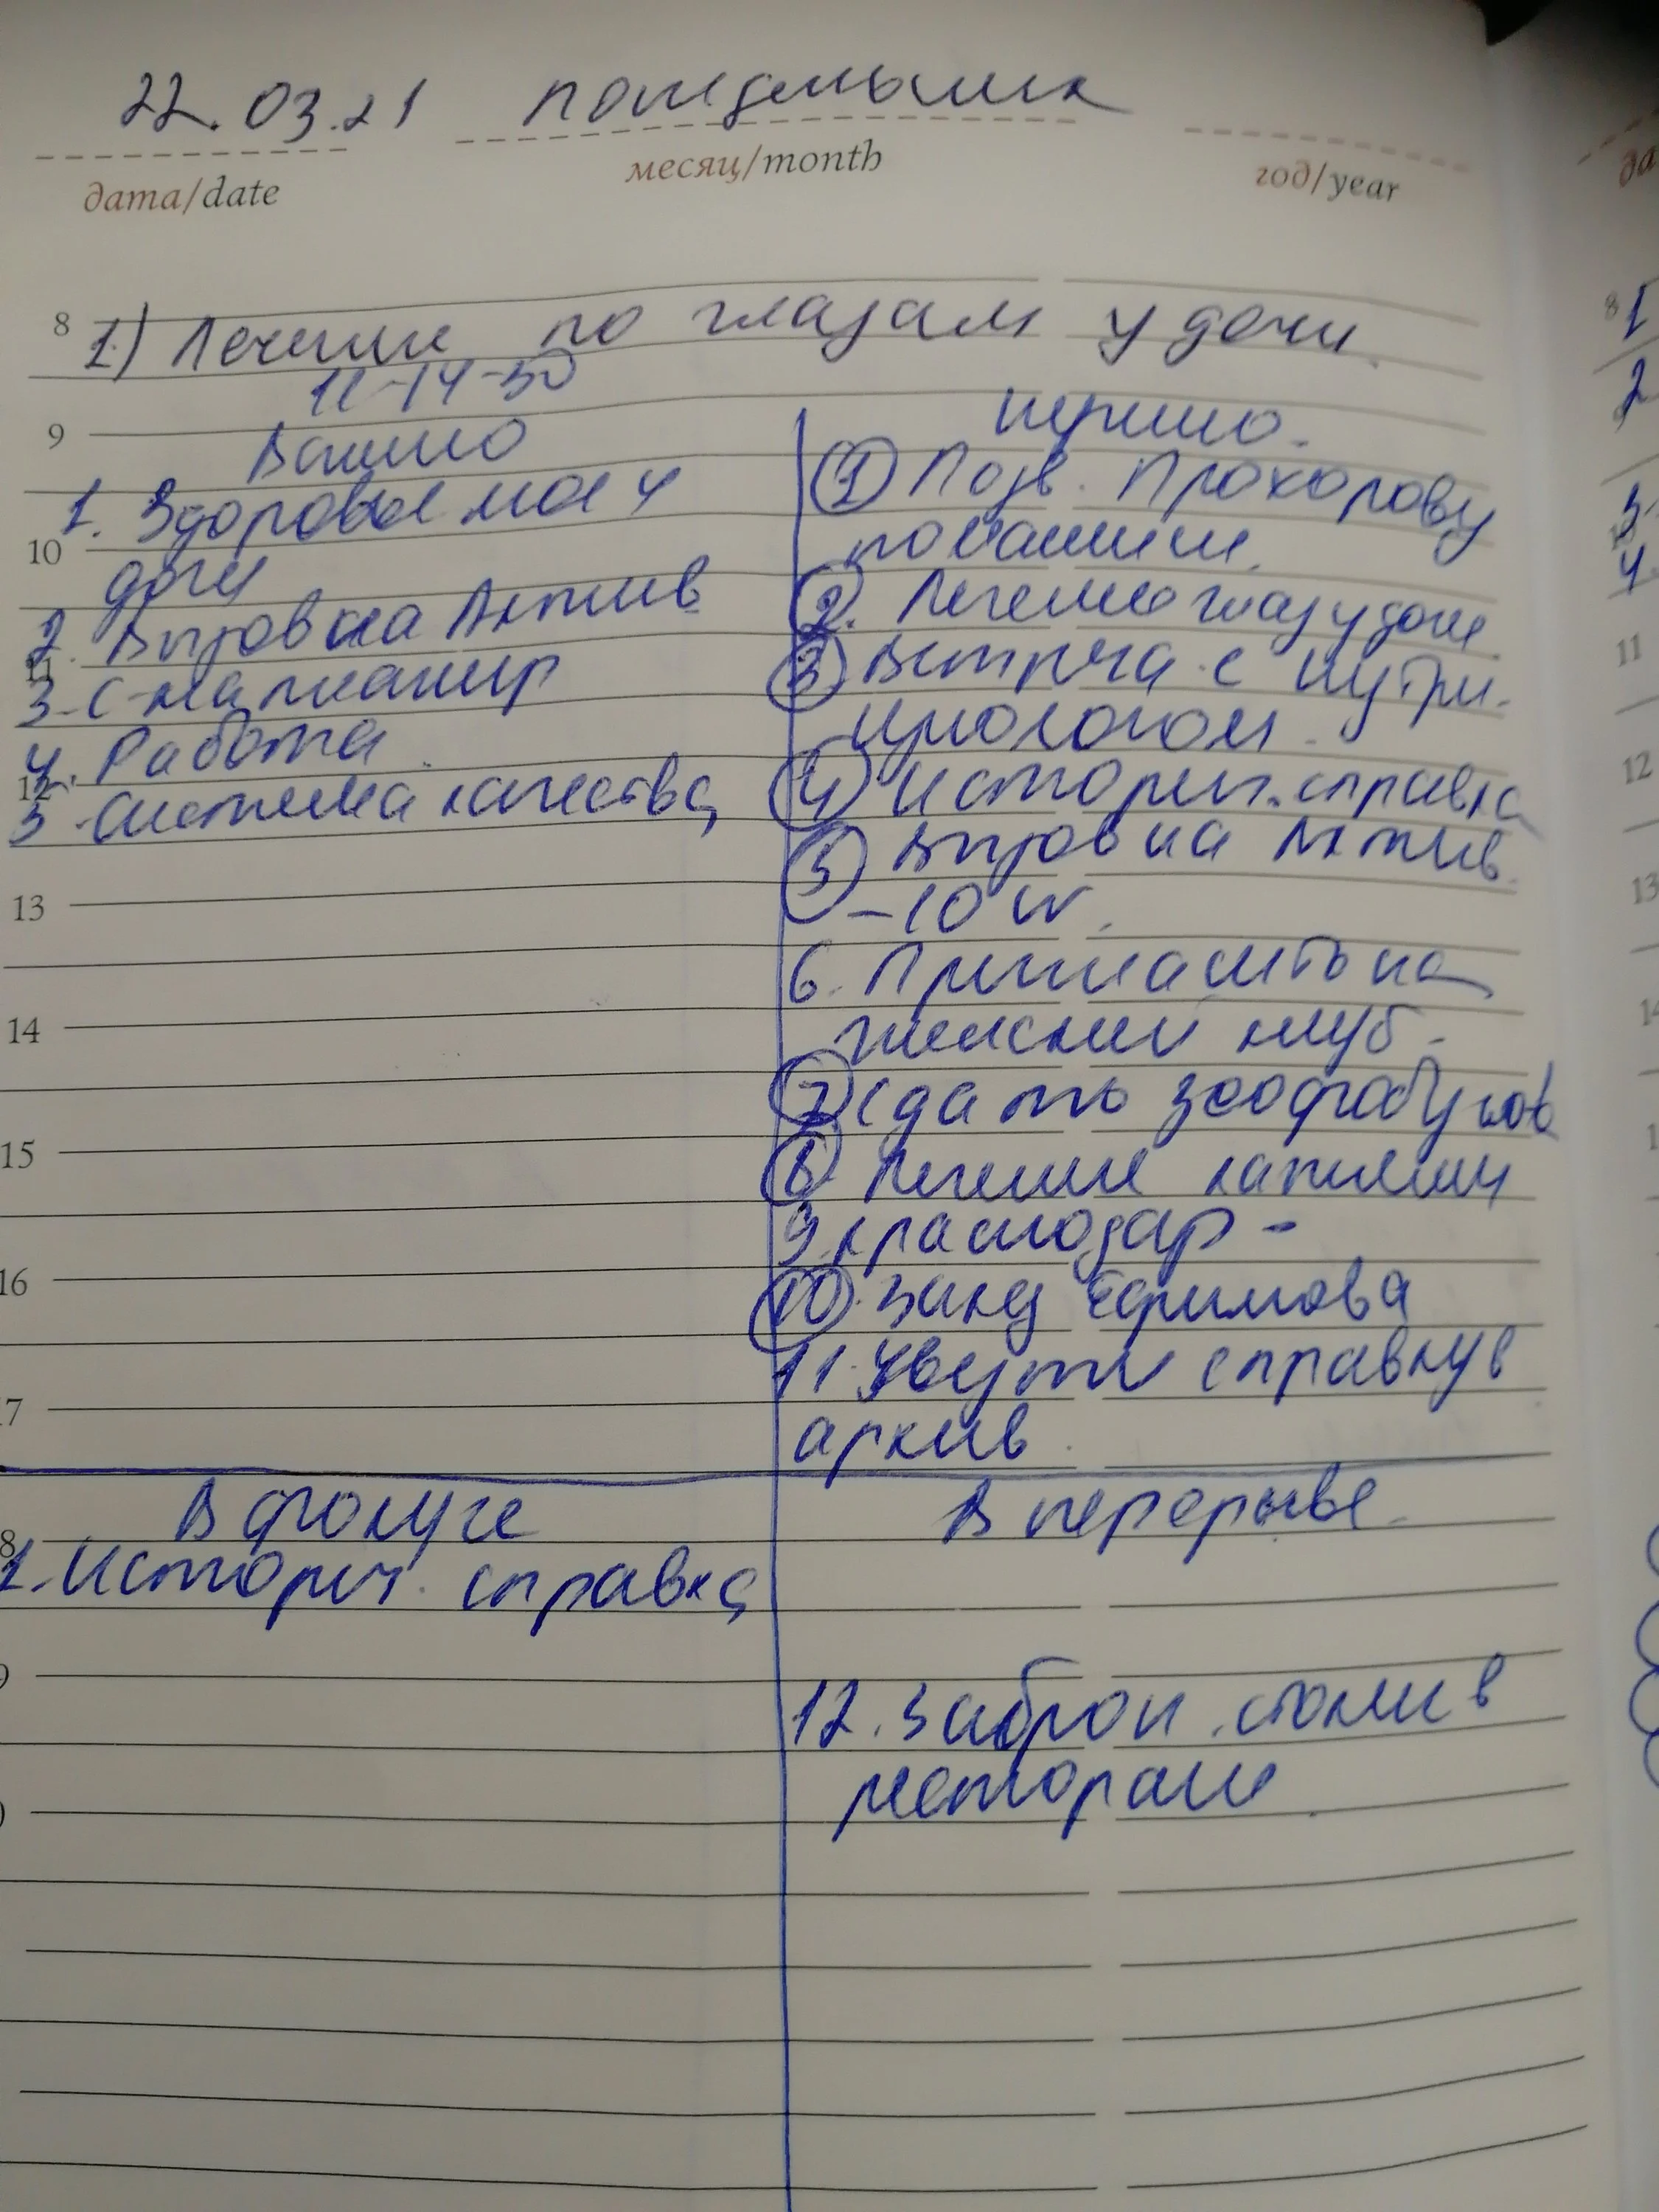 22.03.21 понедельник
дата/date месяц/month год/year
8 1) Лечение по глазам у дочи.
12-14-30
9 Важно
1. Здоровье мое и
10 дочи
2. Выров на Актив
11 3.
4. Работа.
12 5. Система качества
13
14
15
16
17
срочно.
1 Позв. Прохорову
по
2. Лечение глаз у дочи
3 Встреча с нутри-
циологом.
4 Историч. справка
5 Выров на Актив
-10
6. Пригласить на
женский клуб.
7 Сдать
8 Лечение капилли
9. Краснодар -
10. Заказ Ефимова
11. Увезти справку в
архив.
В фокусе
8
1. Историч. справка
9
В перерыве.
12. Заброн. столик в
ресторане.
8 1
2
3
4
11
12
13